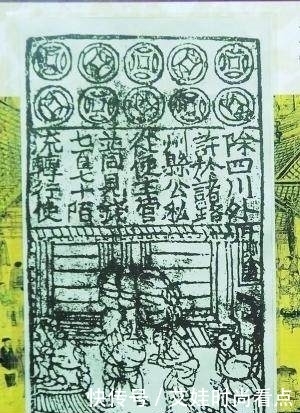 除四川外
許於諸路
州縣公私
從便主管
並同見錢
七百七十陌
流轉行使
快传号 / 文娃时尚看点